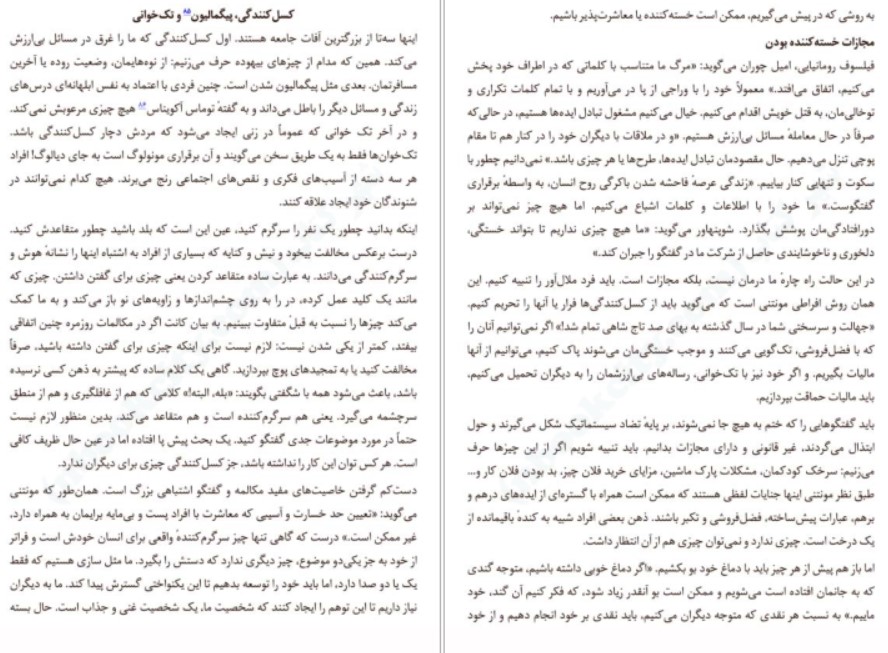 کسل‌کنندگی، پیگمالیون۸۵ و تک‌خوانی
اینها سه‌تا از بزرگترین آفات جامعه هستند. اول کسل‌کنندگی که ما را غرق در مسائل بی‌ارزش
می‌کند. همین که مدام از چیزهای بیهوده حرف می‌زنیم: از نوه‌هایمان، وضعیت روده یا آخرین
مسافرتمان. بعدی مثل پیگمالیون شدن است. چنین فردی با اعتماد به نفس ابلهانه‌ای درس‌های
زندگی و مسائل دیگر را باطل می‌داند و به گفتهٔ توماس آکویناس هیچ چیزی مرعوبش نمی‌کند.
و در آخر تک خوانی که عموماً در زنی ایجاد می‌شود که مردش دچار کسل‌کنندگی باشد.
تک‌خوان‌ها فقط به یک طریق سخن می‌گویند و آن برقراری مونولوگ است به جای دیالوگ! افراد
هر سه دسته از آسیب‌های فکری و نقص‌های اجتماعی رنج می‌برند. هیچ کدام نمی‌توانند در
شنوندگان خود ایجاد علاقه کنند.
اینکه بدانید چطور یک نفر را سرگرم کنید، عین این است که بلد باشید چطور متقاعدش کنید.
درست برعکس مخالفت بیخود و نیش و کنایه که بسیاری از افراد به اشتباه اینها را نشانهٔ هوش و
سرگرم‌کنندگی می‌دانند. به عبارت ساده متقاعد کردن یعنی چیزی برای گفتن داشتن. چیزی که
مانند یک کلید عمل کرده، در را به روی چشم‌اندازها و زاویه‌های نو باز می‌کند و به ما کمک
می‌کند چیزها را نسبت به قبل متفاوت ببینیم. به بیان کانت اگر در مکالمات روزمره چنین اتفاقی
بیفتد، کمتر از یکی شدن نیست: لازم نیست برای اینکه چیزی برای گفتن داشته باشید، صرفاً
مخالفت کنید یا به تمجیدهای پوچ بپردازید. گاهی یک کلام ساده که پیشتر به ذهن کسی نرسیده
باشد، باعث می‌شود همه با شگفتی بگویند: «بله، البته!» کلامی که هم از غافلگیری و هم از منطق
سرچشمه می‌گیرد. یعنی هم سرگرم‌کننده است و هم متقاعد می‌کند. بدین منظور لازم نیست
حتماً در مورد موضوعات جدی گفتگو کنید. یک بحث پیش پا افتاده اما در عین حال ظریف کافی
است. هر کس توان این کار را نداشته باشد، جز کسل‌کنندگی چیزی برای دیگران ندارد.
دست‌کم گرفتن خاصیت‌های مفید مکالمه و گفتگو اشتباهی بزرگ است. همان‌طور که مونتنی
می‌گوید: «تعیین حد خسارت و آسیبی که معاشرت با افراد پست و بی‌مایه برایمان به همراه دارد،
غیر ممکن است.» درست که گاهی تنها چیز سرگرم‌کنندهٔ واقعی برای انسان خودش است و فراتر
از خود به جز یکی‌دو موضوع، چیز دیگری ندارد که دستش را بگیرد. ما مثل سازی هستیم که فقط
یک یا دو صدا دارد، اما باید خود را توسعه بدهیم تا این یکنواختی گسترش پیدا کند. ما به دیگران
نیاز داریم تا این توهم را ایجاد کنند که شخصیت ما، یک شخصیت غنی و جذاب است. حال بسته
به روشی که در پیش می‌گیریم، ممکن است خسته‌کننده یا معاشرت‌پذیر باشیم.
مجازات خسته‌کننده بودن
فیلسوف رومانیایی، امیل چوران می‌گوید: «مرگ ما متناسب با کلماتی که در اطراف خود پخش
می‌کنیم، اتفاق می‌افتد.» معمولاً خود را با وراجی از پا در می‌آوریم و با تمام کلمات تکراری و
توخالی‌مان، به قتل خویش اقدام می‌کنیم. خیال می‌کنیم مشغول تبادل ایده‌ها هستیم، در حالی‌که
صرفاً در حال معاملهٔ مسائل بی‌ارزش هستیم. «و در ملاقات با دیگران خود را در کنار هم تا مقام
پوچی تنزل می‌دهیم. حال مقصودمان تبادل ایده‌ها، طرح‌ها یا هر چیزی باشد.» نمی‌دانیم چطور با
سکوت و تنهایی کنار بیاییم. «زندگی عرصهٔ فاحشه شدن باکرگی روح انسان، به واسطهٔ برقراری
گفتگوست.» ما خود را با اطلاعات و کلمات اشباع می‌کنیم. اما هیچ چیز نمی‌تواند بر
دورافتادگی‌مان پوشش بگذارد. شوپنهاور می‌گوید: «ما هیچ چیزی نداریم تا بتواند خستگی،
دلخوری و ناخوشایندی حاصل از شرکت ما در گفتگو را جبران کند.»
در این حالت راه چارهٔ ما درمان نیست، بلکه مجازات است. باید فرد ملال‌آور را تنبیه کنیم. این
همان روش افراطی مونتنی است که می‌گوید باید از کسل‌کنندگی‌ها فرار یا آنها را تحریم کنیم.
«جهالت و سرسختی شما در سال گذشته به بهای صد تاج شاهی تمام شد!» اگر نمی‌توانیم آنان را
که با فضل‌فروشی، تک‌گویی می‌کنند و موجب خستگی‌مان می‌شوند پاک کنیم، می‌توانیم از آنها
مالیات بگیریم. و اگر خود نیز با تک‌خوانی، رساله‌های بی‌ارزشمان را به دیگران تحمیل می‌کنیم،
باید مالیات حماقت بپردازیم.
باید گفتگوهایی را که ختم به هیچ جا نمی‌شوند، بر پایهٔ تضاد سیستماتیک شکل می‌گیرند و حول
ابتذال می‌گردند، غیر قانونی و دارای مجازات بدانیم. باید تنبیه شویم اگر از این چیزها حرف
می‌زنیم: سرخک کودکمان، مشکلات پارک ماشین، مزایای خرید فلان چیز، بد بودن فلان کار و...
طبق نظر مونتنی اینها جنایات لفظی هستند که ممکن است همراه با گستره‌ای از ایده‌های درهم و
برهم، عبارات پیش‌ساخته، فضل‌فروشی و تکبر باشند. ذهن بعضی افراد شبیه به کندهٔ باقیمانده از
یک درخت است. چیزی ندارد و نمی‌توان چیزی هم از آن انتظار داشت.
اما باز هم پیش از هر چیز باید با دماغ خود بو بکشیم. «اگر دماغ خوبی داشته باشیم، متوجه گندی
که به جانمان افتاده است می‌شویم و ممکن است بو آنقدر زیاد شود، که فکر کنیم آن گند، خود
ماییم.» به نسبت هر نقدی که متوجه دیگران می‌کنیم، باید نقدی بر خود انجام دهیم و از خود